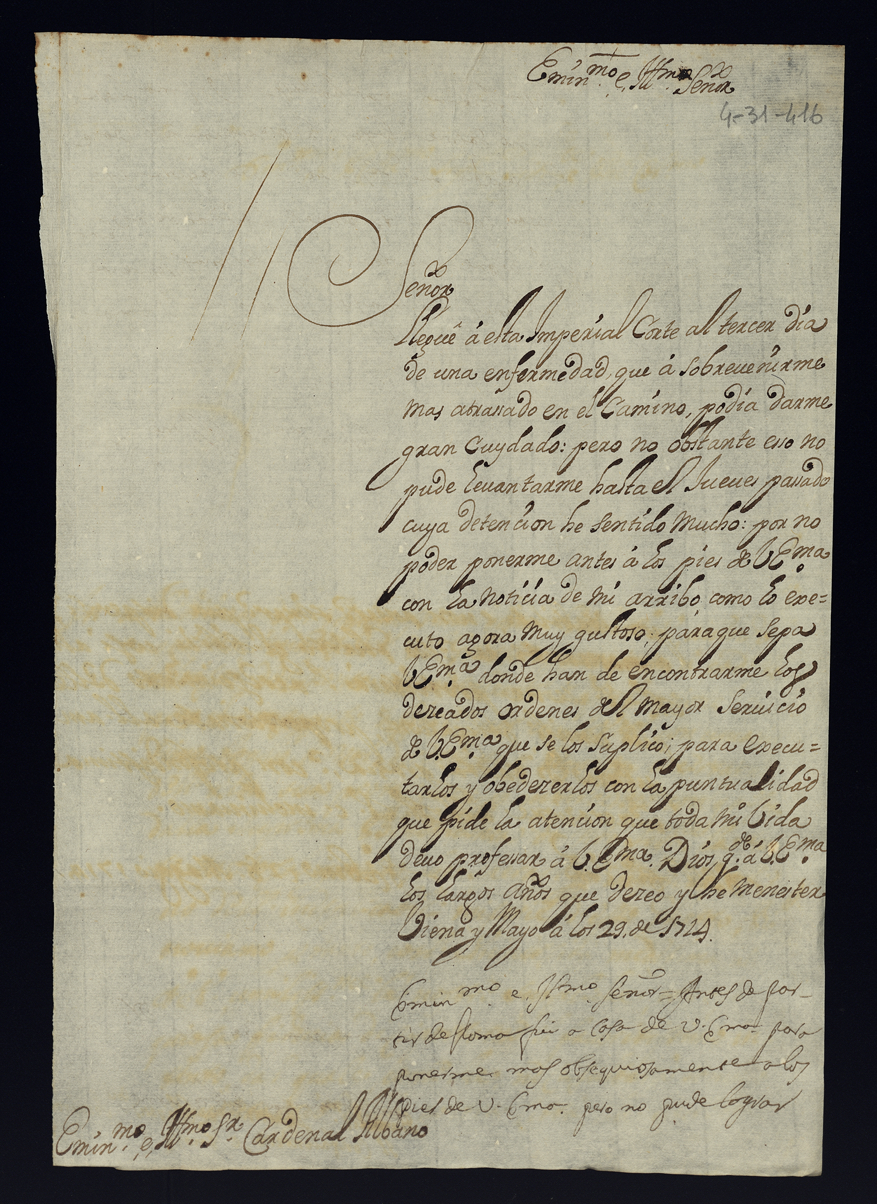 Emin.mo e, Ill.mo Señor
4-31-416
Señor
Llegué á esta Imperial Corte al tercer dia
de una enfermedad, que á sobrevenirme
mas atrassado en el Camino, podia darme
gran Cuydado: pero no obstante esso no
pude levantarme hasta el Jueves passado
cuya detencion he sentido Mucho: por no
poder ponerme antes á los pies de V.Em.a
con la Noticia de mi arribo, como lo exe=
cuto agora Muy gustoso; paraque sepa
V.Em.a donde han de encontrarme los
dezeados ordenes del Mayor Servicio
de V.Em.a que se los suplico; para execu=
tarlos y obedezerlos con la puntualidad
que pide la atencion que toda mi Vida
devo professar á V.Em.a. Dios g.de á V.Em.a
los largos años que dezeo y he Menester
Viena y Mayo á los 29. de 1714.
Emin.mo e Ill.mo Señor = Antes de par-
tir de Roma fui a Casa de V. Em.a para
ponerme mas obsequiosamente a los
Pies de V. Em.a pero no pude lograr
Emin.mo, e, Ill.mo S.r Cardenal Albano